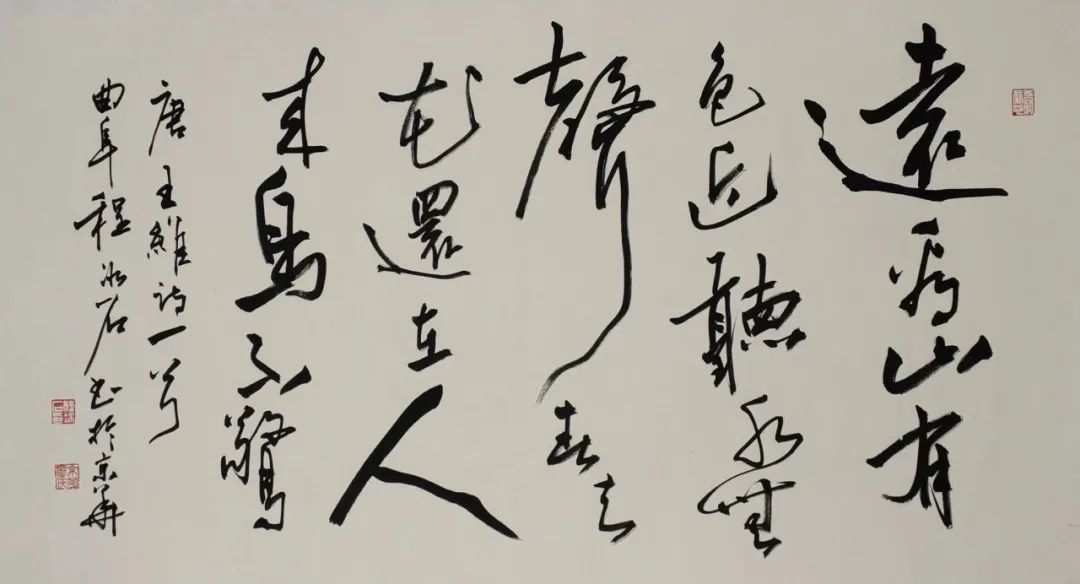 遠看山有
色近聽水無
聲春去
花還在人
来鳥不驚
唐王維詩一首
曲阜程冰石書於京華